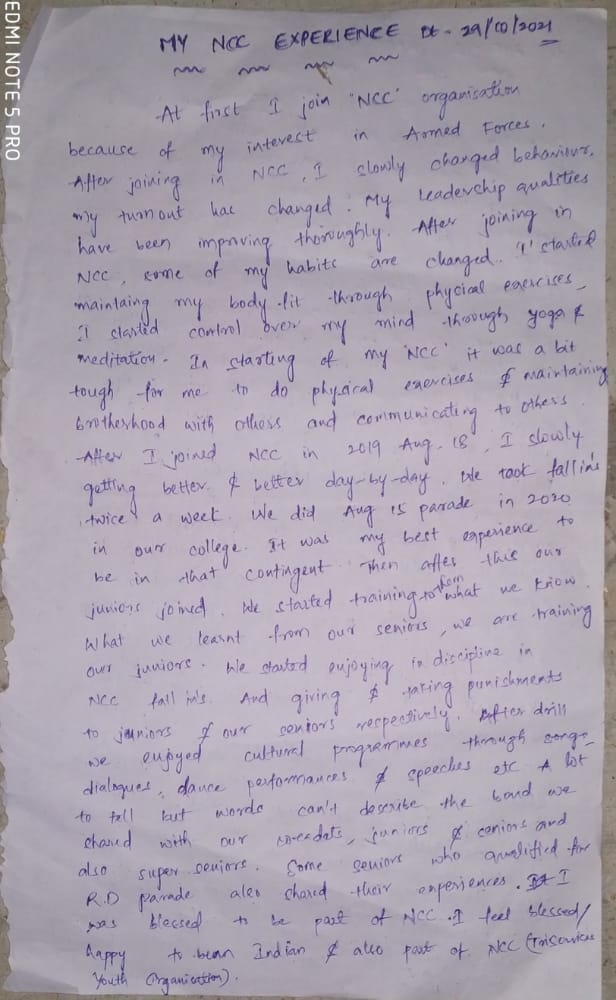 EDMI NOTE 5 PRO
MY NCC EXPERIENCE Dt - 29/10/2021
At first I join 'NCC' organisation
because of my interest in Armed Forces.
After joining in NCC, I slowly changed behaviour.
my turnout has changed. My Leadership qualities
have been improving thoroughly. After joining in
NCC, some of my habits are changed. 'I' started
maintaing my body fit through physical exercises
I started control over my mind through yoga &
meditation. In starting of my 'NCC' it was a bit
tough for me to do physical exercises & maintaining
brotherhood with others and communicating to others.
After I joined NCC in 2019 Aug. 18, I slowly
getting better & better day-by-day. We took fallin's
twice a week. We did Aug 15 parade in 2020
in our college. It was my best experience to
be in that contingent. Then after this our
juniors joined. We started training to them what we know.
What we learnt from our seniors, we are training
our juniors. We started enjoying in discipline in
NCC fall in's. And giving & taking punishments
to juniors & our seniors respectively. After drill
we enjoyed cultural programmes through songs,
dialogues, dance performances & speeches etc A lot
to tell but words can't describe the bond we
shared with our co-cadets, juniors & seniors and
also super seniors. Some seniors who qualified for
R.D parade also shared their experiences. I
was blessed to be part of NCC. I feel blessed/
happy to be an Indian & also part of NCC (Triservices
Youth Organisation).